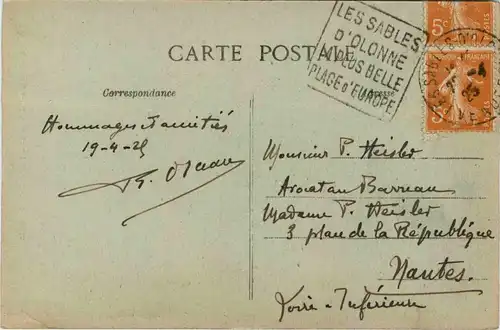 CARTE POSTALE
LES SABLES
D'OLONNE
PLUS BELLE
PLACE d'EUROPE
5c
5c
Correspondance
Adresse
Hommages et amitiés
19-4-25
Monsieur P. Heisler
Avocat au Barreau
Madame P. Heisler
3 place de la République
Nantes.
Loire-Inférieure